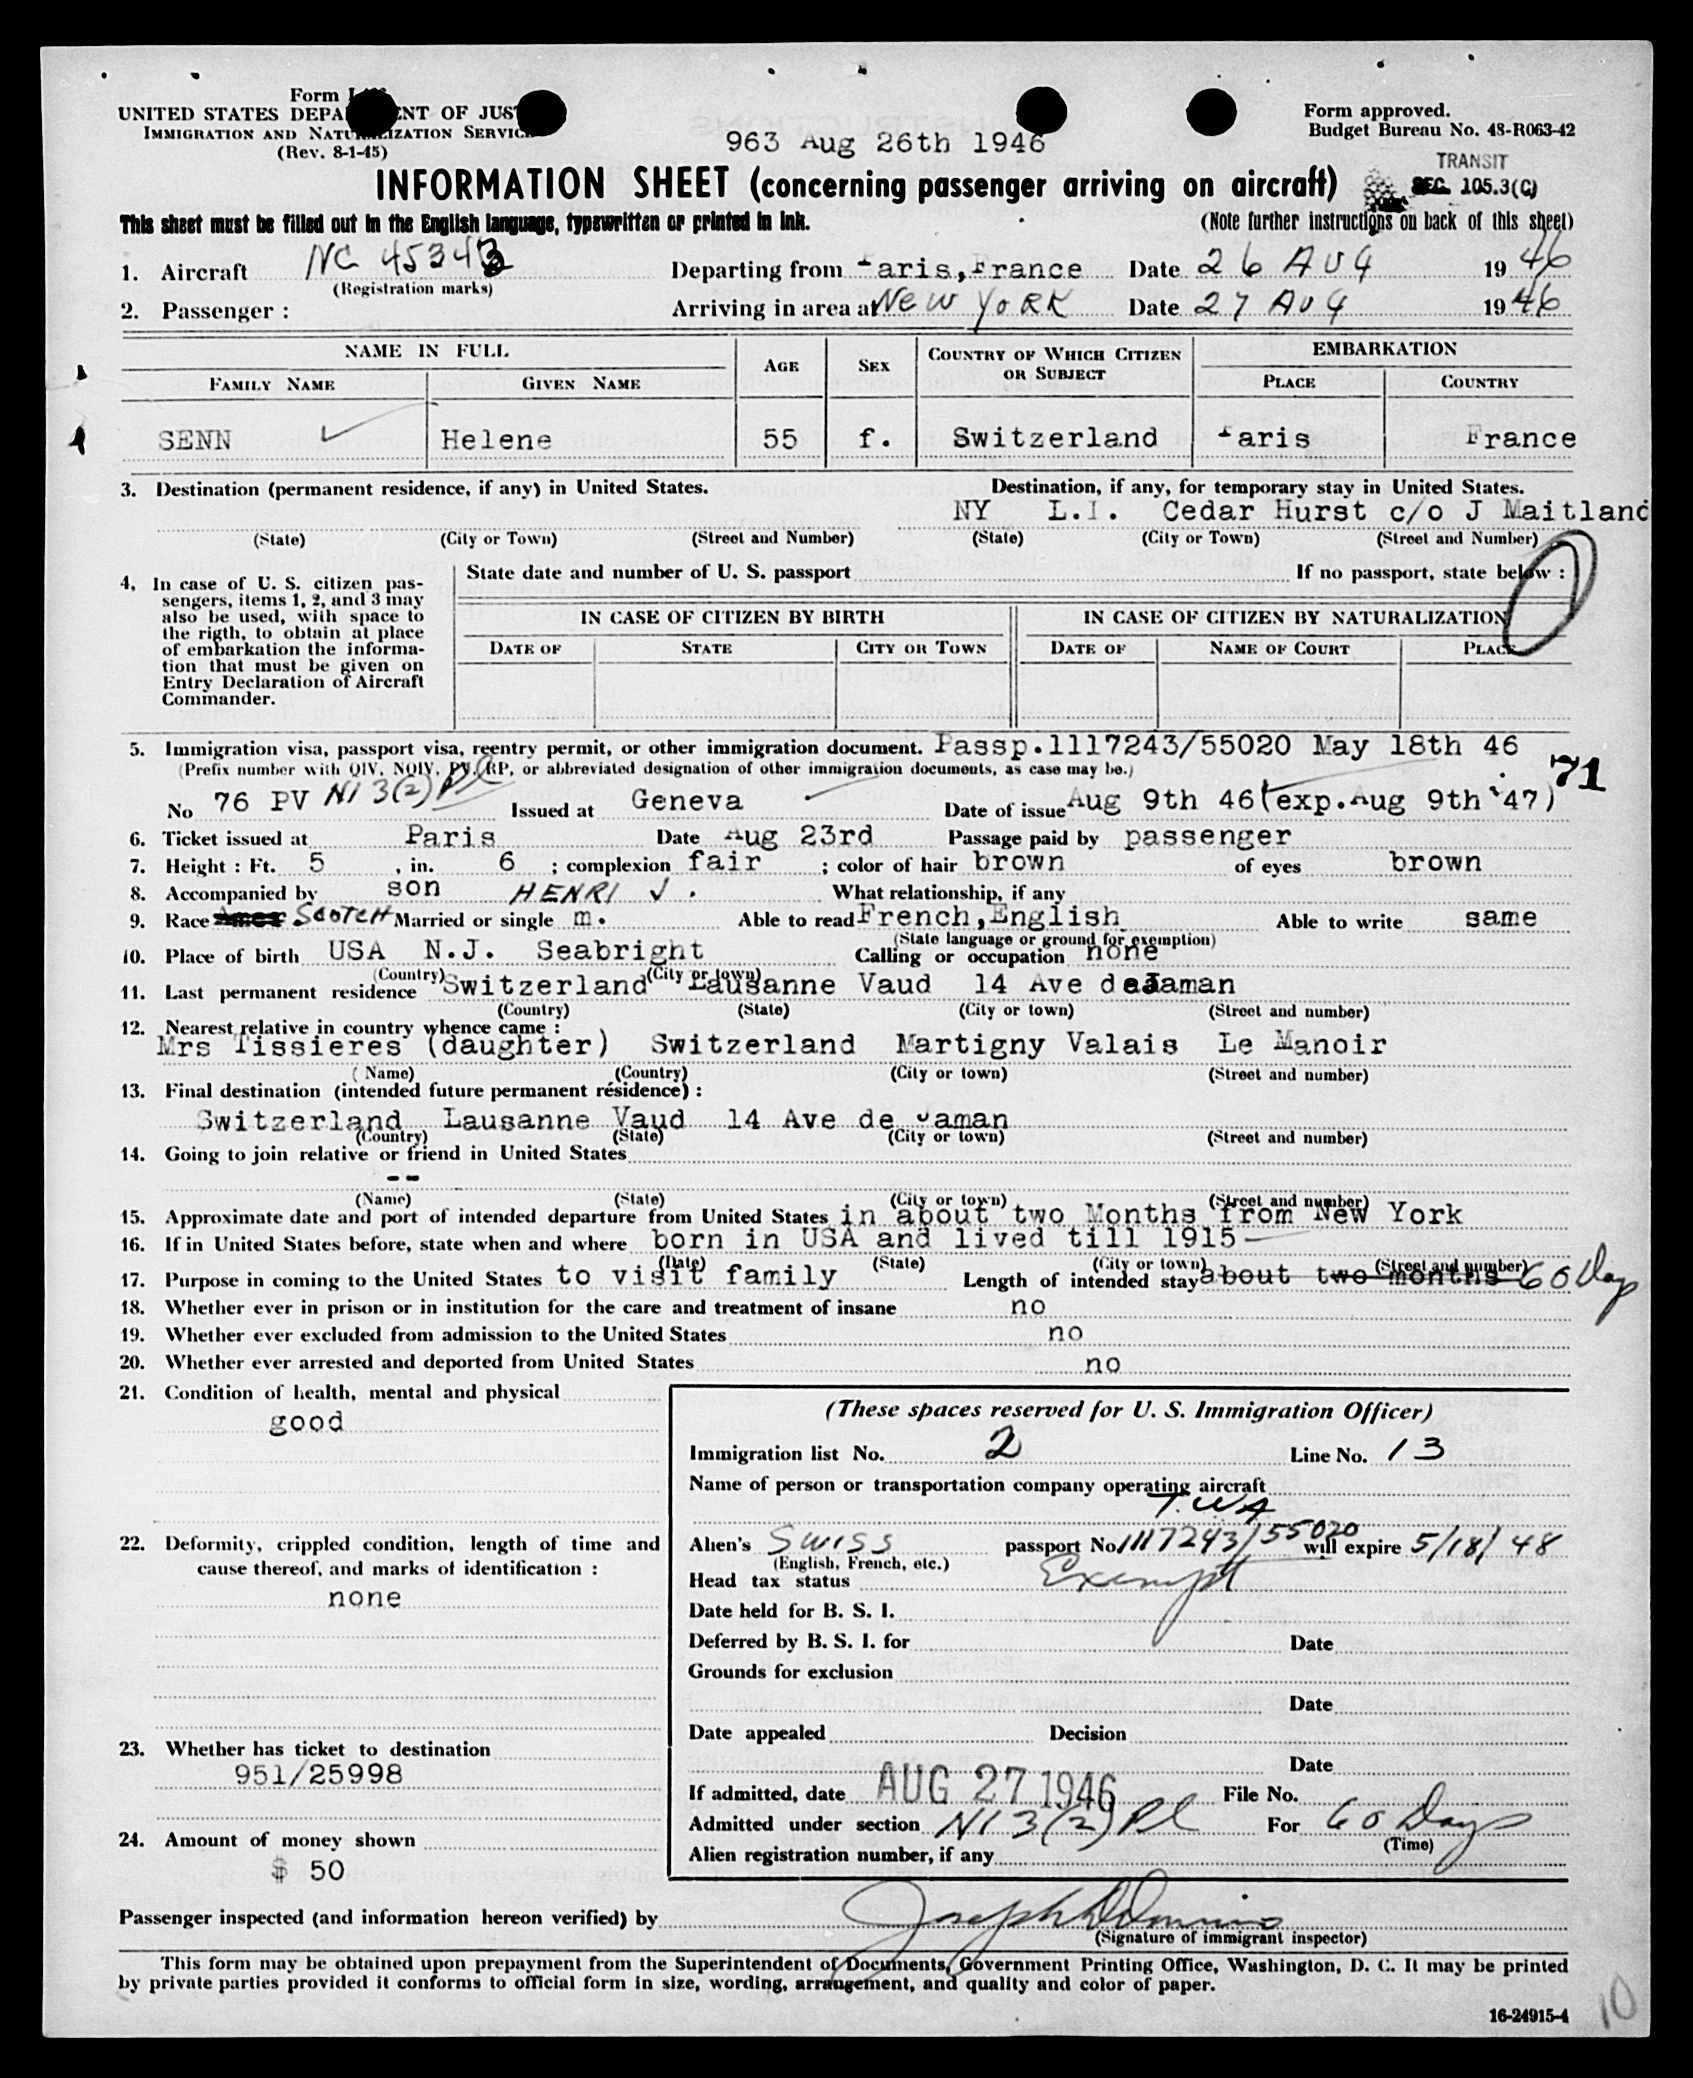 Form
UNITED STATES DEPA NT OF JUST
IMMIGRATION AND NATURALIZATION SERVICE
(Rev. 8-1-45)
Form approved.
Budget Bureau No. 43-R063-42
963 Aug 26th 1946
TRANSIT
SEC. 105.3(C)
INFORMATION SHEET (concerning passenger arriving on aircraft)
This sheet must be filled out in the English language, typewritten or printed in ink.
(Note further instructions on back of this sheet)
1. Aircraft NC 45343 Departing from Paris,France Date 26 AUG 1946
(Registration marks)
2. Passenger : Arriving in area at NEW YORK Date 27 AUG 1946
NAME IN FULL AGE SEX COUNTRY OF WHICH CITIZEN OR SUBJECT EMBARKATION
FAMILY NAME GIVEN NAME PLACE COUNTRY
SENN Helene 55 f. Switzerland Paris France
3. Destination (permanent residence, if any) in United States. Destination, if any, for temporary stay in United States.
NY L.I. Cedar Hurst c/o J Maitland
(State) (City or Town) (Street and Number) (State) (City or Town) (Street and Number)
4, In case of U. S. citizen pas-
sengers, items 1, 2, and 3 may
also be used, with space to
the rigth, to obtain at place
of embarkation the informa-
tion that must be given on
Entry Declaration of Aircraft
Commander.
State date and number of U. S. passport If no passport, state below :
IN CASE OF CITIZEN BY BIRTH IN CASE OF CITIZEN BY NATURALIZATION
DATE OF STATE CITY OR TOWN DATE OF NAME OF COURT PLACE
5. Immigration visa, passport visa, reentry permit, or other immigration document. Passp.1117243/55020 May 18th 46
(Prefix number with QIV, NQIV, PV, RP, or abbreviated designation of other immigration documents, as case may be.)
71
No 76 PV NI 3(2) Pl Issued at Geneva Date of issue Aug 9th 46(exp.Aug 9th '47)
6. Ticket issued at Paris Date Aug 23rd Passage paid by passenger
7. Height : Ft. 5 , in. 6 ; complexion fair ; color of hair brown of eyes brown
8. Accompanied by son HENRI J. What relationship, if any
9. Race Amer SCOTCH Married or single m. Able to read French,English Able to write same
(State language or ground for exemption)
10. Place of birth USA N.J. Seabright Calling or occupation none
(Country) (City or town)
11. Last permanent residence Switzerland Lausanne Vaud 14 Ave deJaman
(Country) (State) (City or town) (Street and number)
12. Nearest relative in country whence came :
Mrs Tissieres (daughter) Switzerland Martigny Valais Le Manoir
( Name) (Country) (City or town) (Street and number)
13. Final destination (intended future permanent résidence) :
Switzerland Lausanne Vaud 14 Ave de Jaman
(Country) (State) (City or town) (Street and number)
14. Going to join relative or friend in United States
--
(Name) (State) (City or town) (Street and number)
15. Approximate date and port of intended departure from United States in about two Months from New York
16. If in United States before, state when and where born in USA and lived till 1915
(Date) (State) (City or town) (Street and number)
17. Purpose in coming to the United States to visit family Length of intended stay about two months 60 Days
18. Whether ever in prison or in institution for the care and treatment of insane no
19. Whether ever excluded from admission to the United States no
20. Whether ever arrested and deported from United States no
21. Condition of health, mental and physical
good
22. Deformity, crippled condition, length of time and
cause thereof, and marks of identification :
none
23. Whether has ticket to destination
951/25998
24. Amount of money shown
$ 50
(These spaces reserved for U. S. Immigration Officer)
Immigration list No. 2 Line No. 13
Name of person or transportation company operating aircraft
T.W.A
Alien's SWISS passport No. 1117243/55020 will expire 5/18/48
(English, French, etc.)
Head tax status Exempt
Date held for B. S. I.
Deferred by B. S. I. for Date
Grounds for exclusion
Date
Date appealed Decision
Date
If admitted, date AUG 27 1946 File No.
Admitted under section NI 3(2) Pl For 60 Days
(Time)
Alien registration number, if any
Passenger inspected (and information hereon verified) by Joseph
(Signature of immigrant inspector)
This form may be obtained upon prepayment from the Superintendent of Documents, Government Printing Office, Washington, D. C. It may be printed
by private parties provided it conforms to official form in size, wording, arrangement, and quality and color of paper.
16-24915-4
10